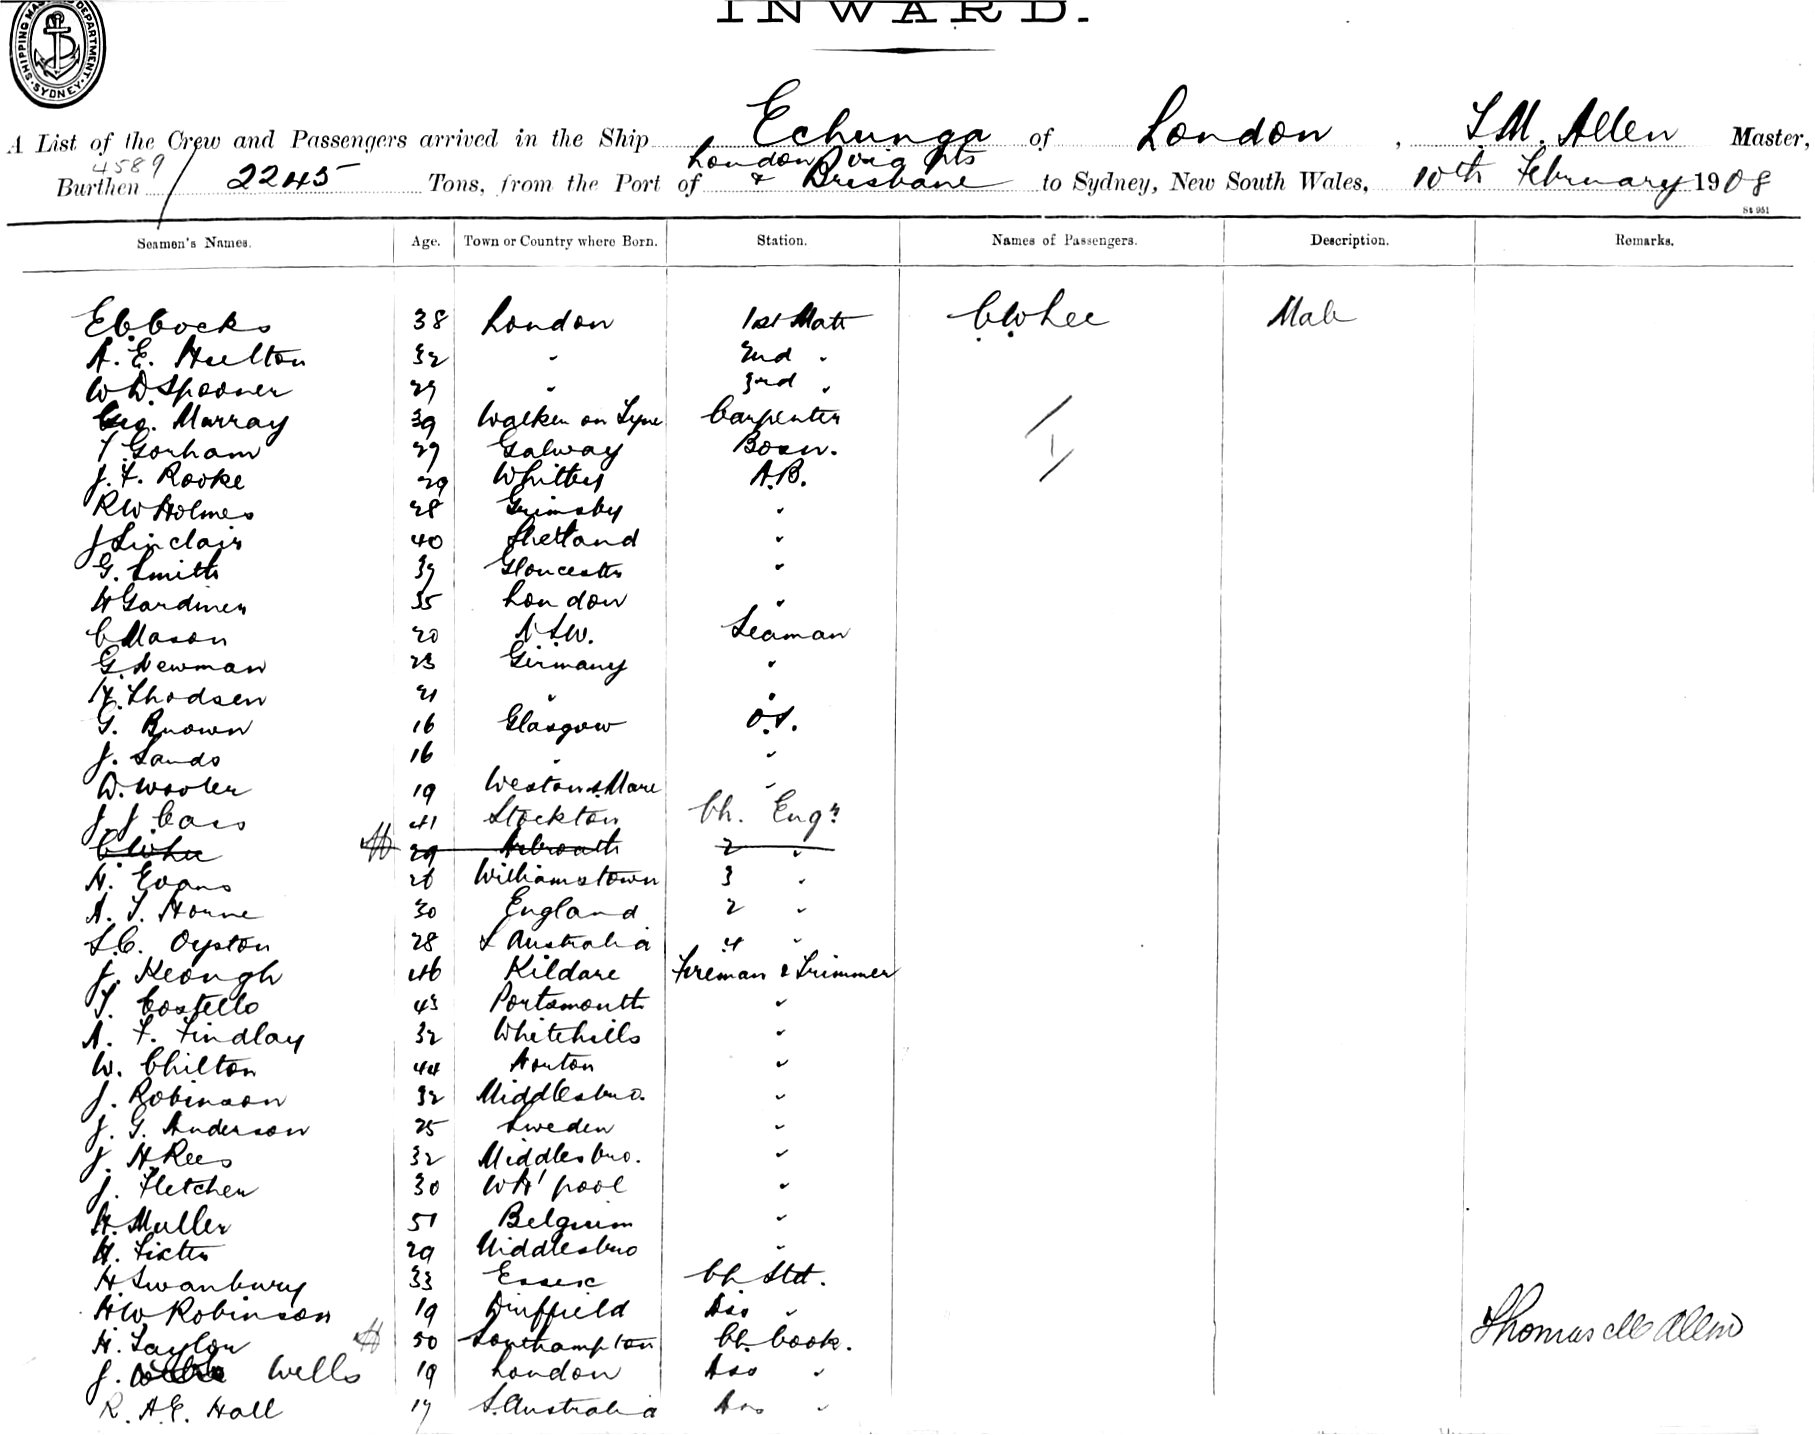 INWARD.
SHIPPING MASTER'S DEPARTMENT · SYDNEY ·
A List of the Crew and Passengers arrived in the Ship Echunga of London, T.M. Allen Master,
4589 London via pts
Burthen / 2245 Tons, from the Port of & Brisbane to Sydney, New South Wales, 10th February 1908
St 951
Seamen's Names. Age. Town or Country where Born. Station. Names of Passengers. Description. Remarks.
38 London 1st Mate C.W. Lee Male
A. E. Hulton 32 " 2nd "
W D. Spooner 29 " 3rd "
Geo. Murray 39 Walker on Tyne Carpenter
T Gorham 29 Galway Bosn.
J. F. Rooke 29 Whitby A.B.
R W Holmes 28 Grimsby "
J Sinclair 40 Shetland "
G. Smith 39 Gloucester "
H Gardiner 35 London "
C Mason 20 N.S.W. Seaman
G. Newman 23 Germany "
H. Thodsen 21 " "
G. Brown 16 Glasgow O.S.
J. Sands 16 " "
D. Wooler 19 Weston s. Mare "
J. J Cass 41 Stockton Ch. Engr
C W Lee 29 Arbroath 2 "
H. Evans 26 Williamstown 3 "
A. T. Horne 30 England 2 "
S.C. Oyston 28 S Australia 4 "
J. Keough 46 Kildare Fireman & Trimmer
T. Costello 43 Portsmouth "
A. F. Findlay 32 Whitehills "
W. Chilton 44 Norton "
J. Robinson 32 Middlesbro. "
J. G. Anderson 25 Sweden "
J. H Rees 32 Middlesbro. "
J. Fletcher 30 W H'pool "
H. Muller 51 Belgium "
H. 29 Middlesbro "
H. Swanbury 33 Essex Ch Std.
H W Robinson 19 Driffield Ass "
H. Taylor 50 Southampton Ch. Cook.
Thomas M Allen
J. Wells 19 London Ass "
R. A. E. Hall 17 S. Australia Ass "